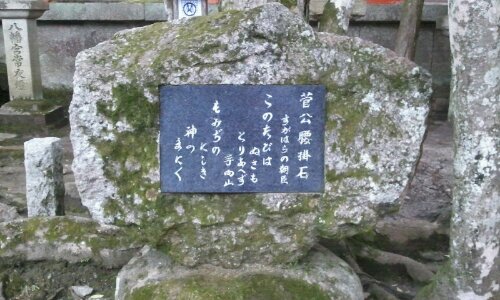 菅公腰掛石
すがはらの朝臣
このたびは
ぬさも
とりあへず
手向山
もみぢの
にしき
神の
まにく
八幡宮常夜